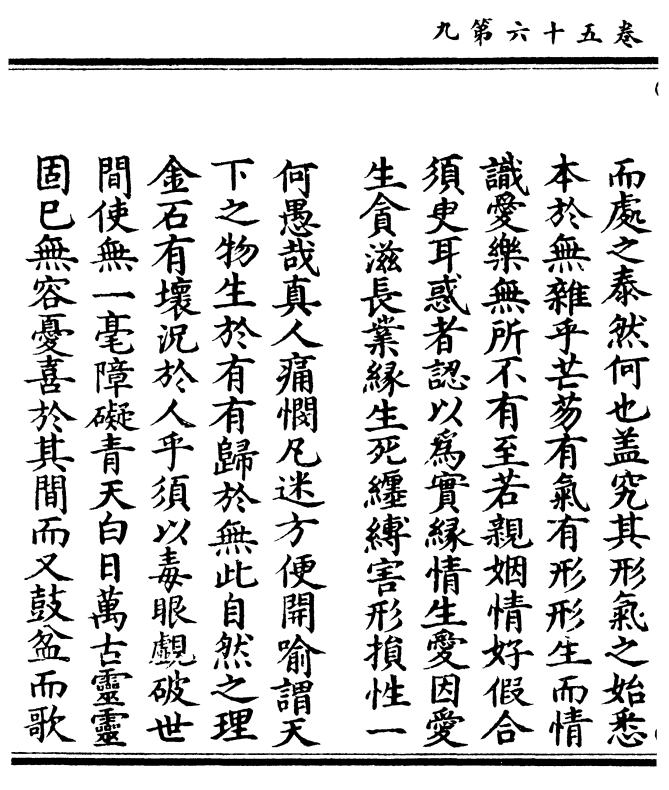 卷五十六第九
而處之泰然何也盖究其形氣之始悉
本於無雜乎芒芴有氣有形形生而情
識愛樂無所不有至若親姻情好假合
須臾耳惑者認以爲實緣情生愛因愛
生貪滋長業緣生死纏縛害形損性一
何愚哉真人痛憫凡迷方便開喻謂天
下之物生於有有歸於無此自然之理
金石有壞況於人乎須以毒眼覷破世
間使無一毫障礙青天白日萬古靈靈
固已無容憂喜於其間而又鼓盆而歌